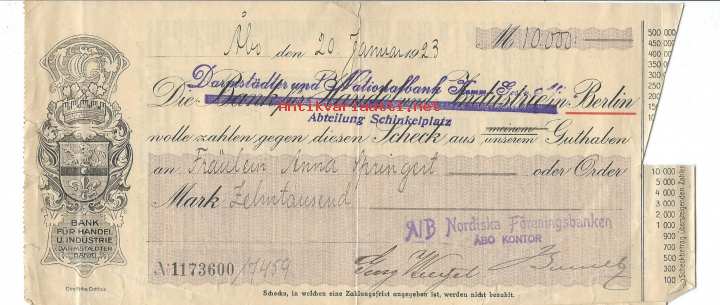 Åbo den 20. Januar 1923
M 10.000.-
Darmstädter und Nationalbank
Die Bank für Handel und Industrie in Berlin
antikvariaatti.net
Abteilung Schinkelplatz
wolle zahlen gegen diesen Scheck aus meinem unserem Guthaben
an Fräulein Anna Springert oder Order
Mark Zehntausend
A/B Nordiska Föreningsbanken
ÅBO KONTOR
BANK
FÜR HANDEL
U. INDUSTRIE
(DARMSTÄDTER
BANK)
№ 1173600/7459
Schecks, in welchen eine Zahlungsfrist angegeben ist, werden nicht bezahlt.
500 000
400 000
300 000
250 000
200 000
150 000
100 000
50 000
10 000
5 000
3 000
2 000
1 000
900
700
500
300